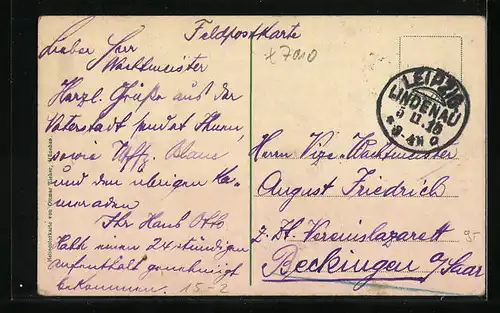 Feldpostkarte
Lieber Herr
Wachtmeister
Herzl. Grüße aus der
Vaterstadt sendet Ihnen,
sowie Uffz.
und den übrigen Ka-
meraden
Ihr Hans Otto
Habe einen 24 stündigen
Aufenthalt genehmigt
bekommen.
15-2
x7010
LEIPZIG
LINDENAU
Herrn Vize-Wachtmeister
August Friedrich
z. Zt. Vereinslazarett
Beckingen a/Saar
Heliogolorkarte von Ottmar Zieher, München